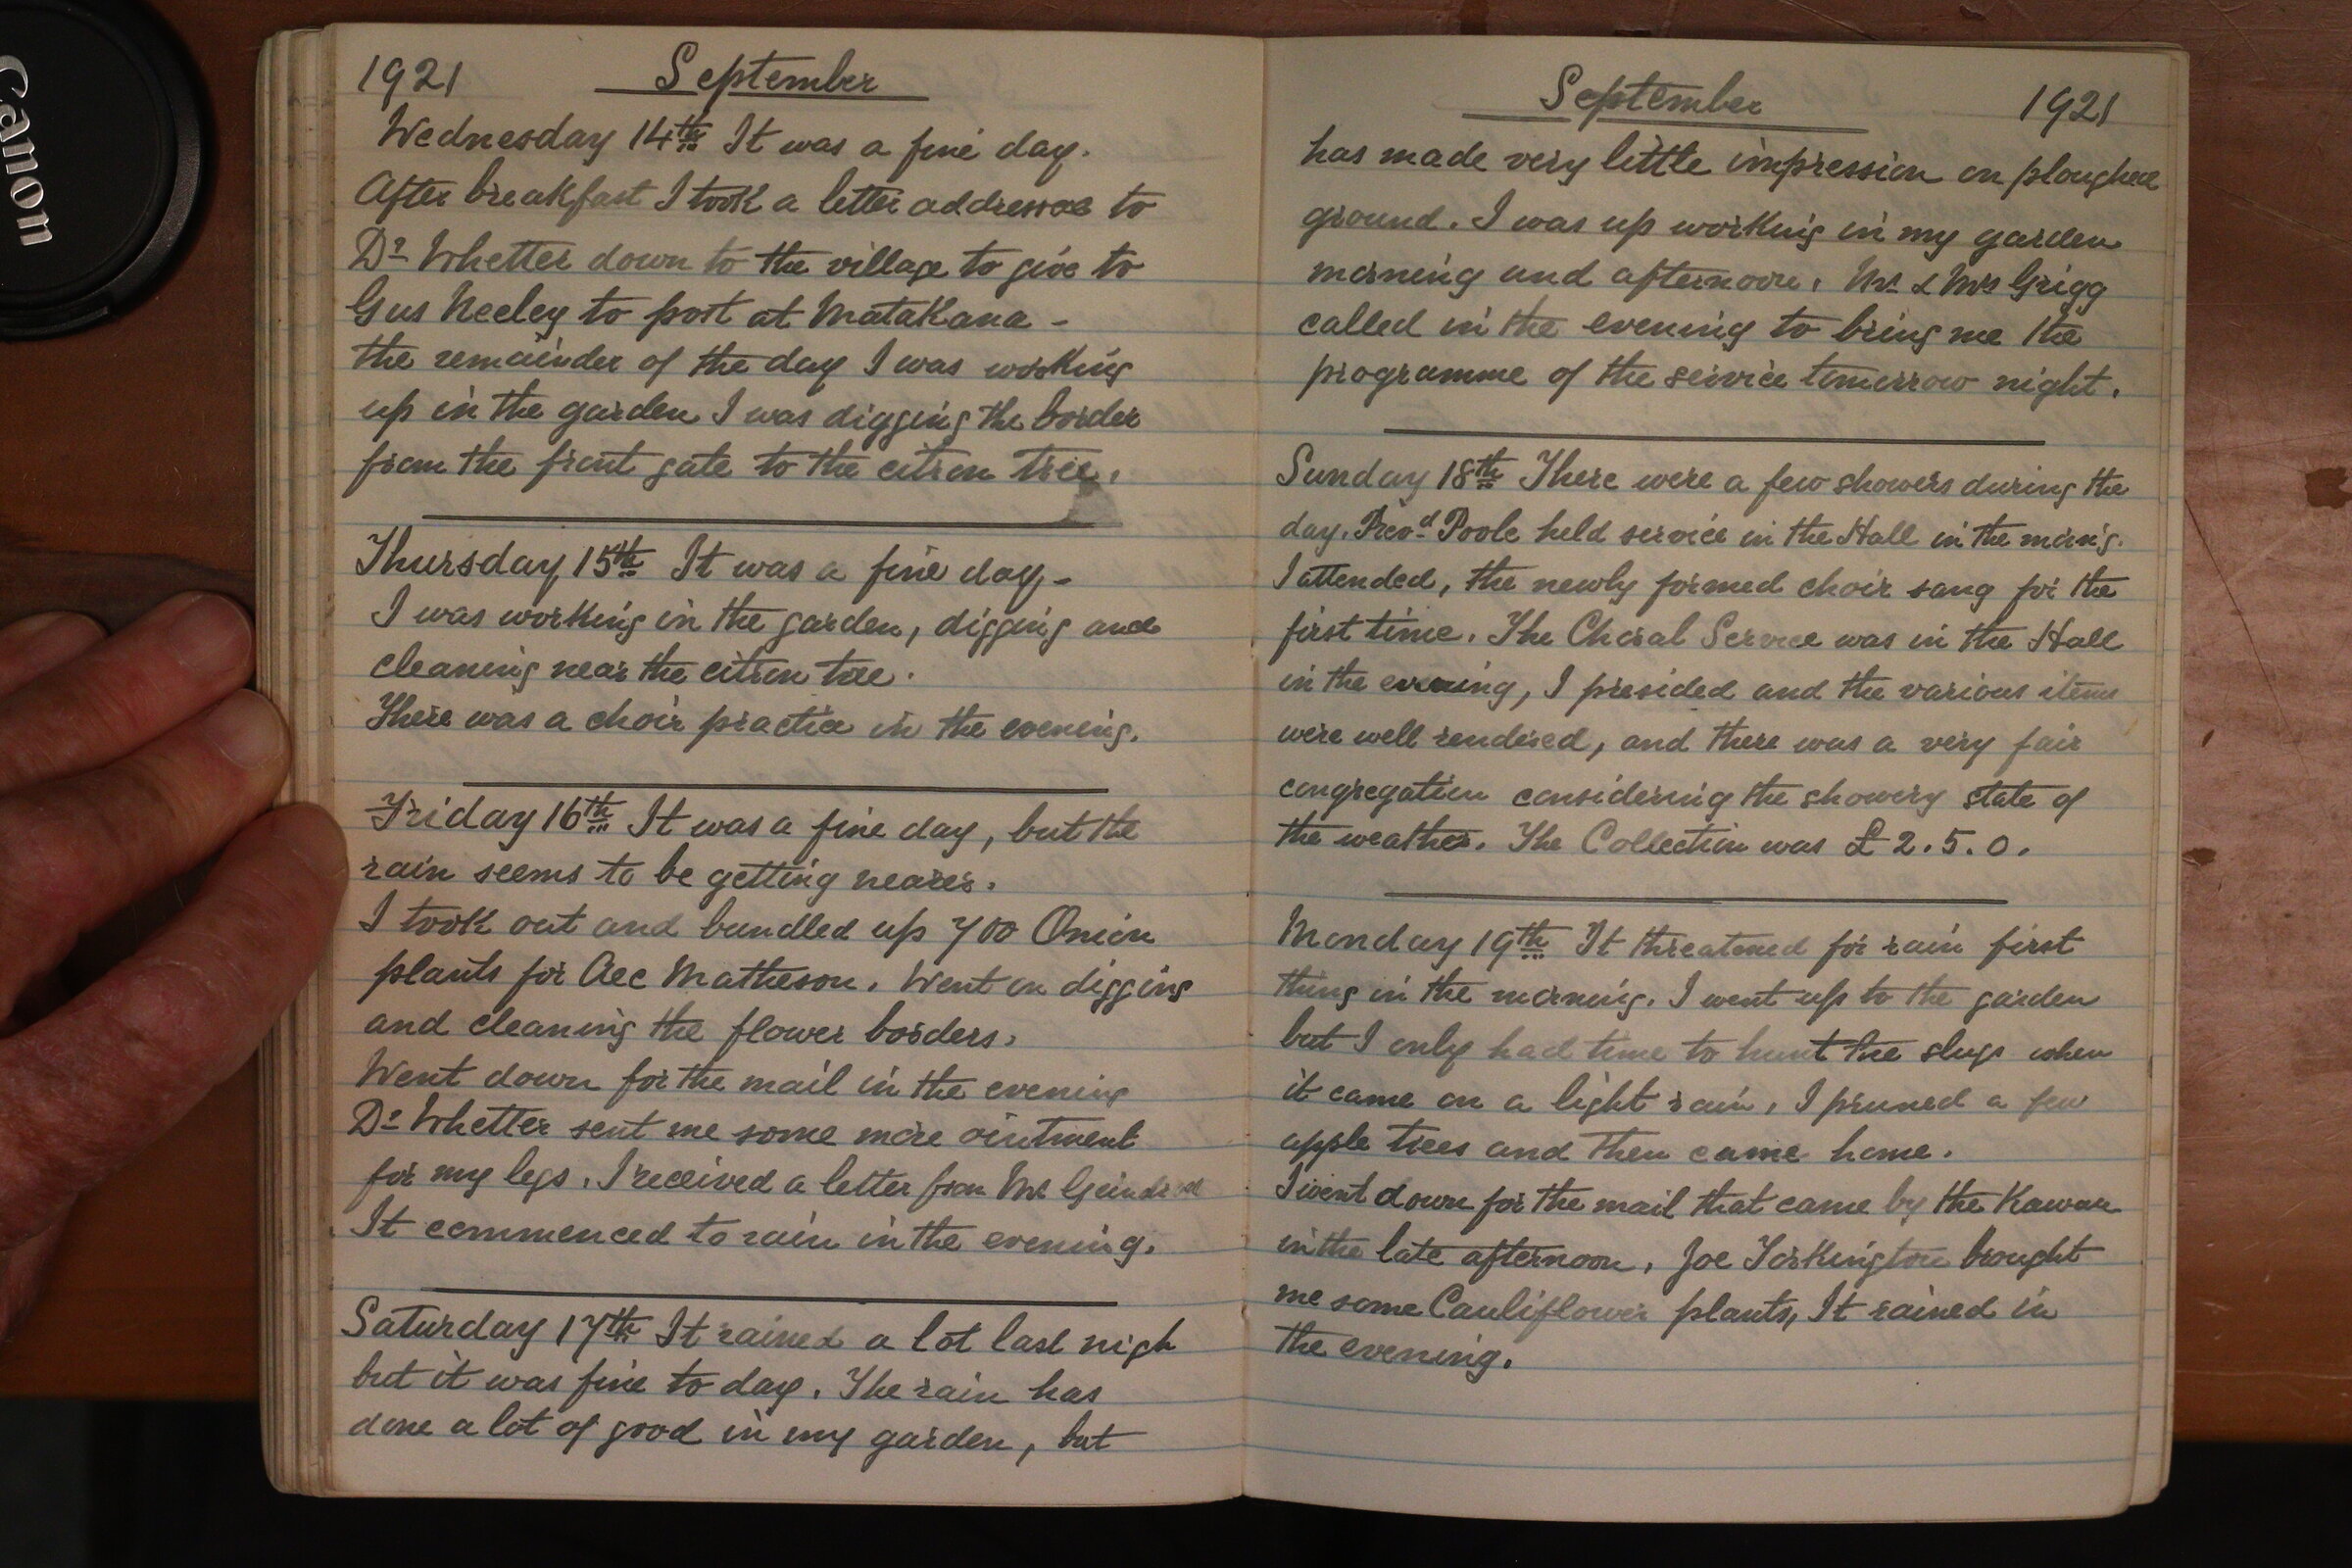 Canon
1921 September
Wednesday 14th It was a fine day.
After breakfast I took a letter addressed to
Dr Whetter down to the village to give to
Gus Neeley to post at Matakana -
the remainder of the day I was working
up in the garden I was digging the border
from the front gate to the citron tree.
Thursday 15th It was a fine day -
I was working in the garden, digging and
cleaning near the citron tree.
There was a choir practice in the evening.
Friday 16th It was a fine day, but the
rain seems to be getting nearer.
I took out and bundled up 700 Onion
plants for Alec Matheson. Went on digging
and cleaning the flower borders.
Went down for the mail in the evening
Dr Whetter sent me some more ointment
for my legs. I received a letter from Mr
It commenced to rain in the evening.
Saturday 17th It rained a lot last nigh
but it was fine to day. The rain has
done a lot of good in my garden, but
September 1921
has made very little impression on ploughed
ground. I was up working in my garden
morning and afternoon. Mr & Mrs Grigg
called in the evening to bring me the
programme of the service tomorrow night.
Sunday 18th There were a few showers during the
day. Revd Poole held service in the Hall in the morng.
I attended, the newly formed choir sang for the
first time. The Choral Service was in the Hall
in the evening, I presided and the various items
were well rendered, and there was a very fair
congregation considering the showery state of
the weather. The Collection was £2.5.0.
Monday 19th It threatened for rain first
thing in the morning. I went up to the garden
but I only had time to hunt the slugs when
it came on a light rain, I pruned a few
apple trees and then came home.
I went down for the mail that came by the Kawau
in the late afternoon. Joe Torkington brought
me some Cauliflower plants, It rained in
the evening.